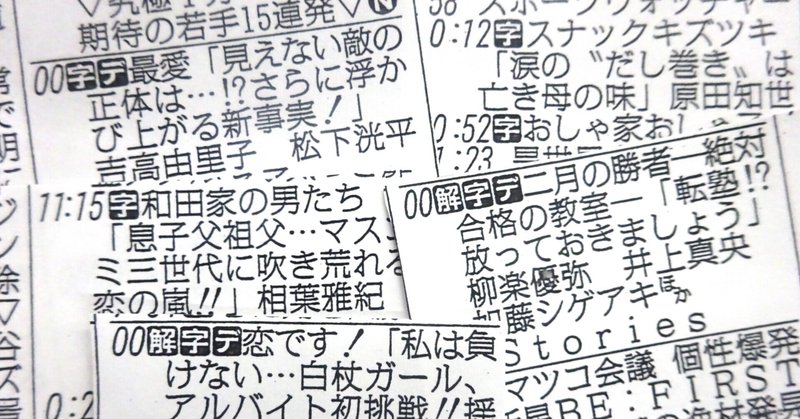 期待の若手15連発▽N
00字デ最愛「見えない敵の
正体は…!?さらに浮か
び上がる新事実!」
吉高由里子 松下洸平
0:12字スナックキズツキ
「涙の〝だし巻き〟は
亡き母の味」原田知世
0:52字おしゃ家お
1:23
11:15字和田家の男たち
「息子父祖父…マスコ
ミ三世代に吹き荒れる
恋の嵐!!」相葉雅紀
00解字デ二月の勝者―絶対
合格の教室―「転塾!?
放っておきましょう」
柳楽優弥 井上真央
加藤シゲアキほか
Stories
00解字デ恋です!「私は負
けない…白杖ガール、
アルバイト初挑戦!!揺
マツコ会議 個性爆発
BE:FIRST